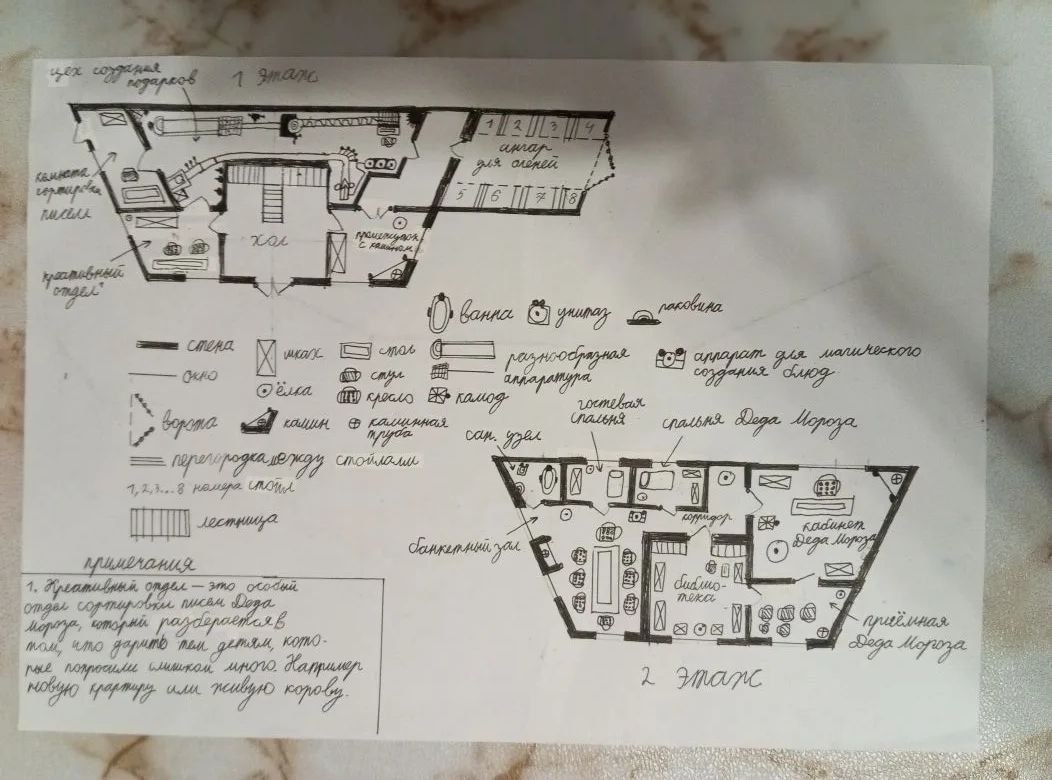 цех создания
подарков
1 Этаж
комната
сортировки
писем
креативный
отдел¹
хол
промежуток
с камином
ангар
для оленей
1 2 3 4
5 6 7 8
ванна
унитаз
раковина
стена
шкаф
стол
разнообразная
аппаратура
аппарат для магического
создания блюд
окно
ёлка
стул
кресло
камод
ворота
камин
каминная
труба
перегородка между стойлами
1,2,3...8 номера стойл
лестница
сан. узел
гостевая
спальня
спальня Деда Мороза
банкетный зал
корридор
кабинет
Деда Мороза
библио-
тека
приёмная
Деда Мороза
2 Этаж
примечания
1. Креативный отдел — это особый
отдел сортировки писем Деда
Мороза, который разберается в
том, что дарить тем детям, кото-
рые попросили слишком много. Например
новую квартиру или живую корову.